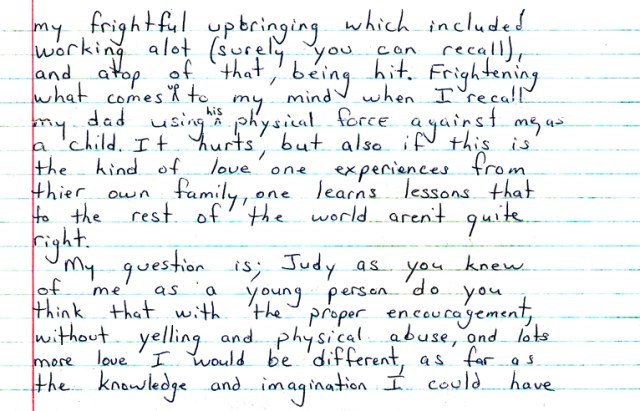 my frightful upbringing which included
working alot (surely you can recall),
and atop of that, being hit. Frightening
what comes up to my mind when I recall
my dad using his physical force against me, as
a child. It hurts, but also if this is
the kind of love one experiences from
thier own family, one learns lessons that
to the rest of the world aren't quite
right.
My question is; Judy as you knew
of me as a young person do you
think that with the proper encouragement,
without yelling and physical abuse, and lots
more love I would be different, as far as
the knowledge and imagination I could have